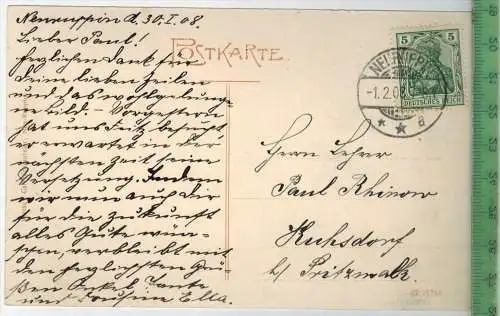 Neuruppin d. 30.I.08.
Lieber Paul!
POSTKARTE.
Herzlichen Dank für
Deine lieben Zeilen
und das wohlgelunge-
ne Bild. Vorgestern
hat uns Fritz besucht
er erwartet in der
nächsten Zeit seine
Versetzung. Indem
wir nun auch Dir
für die Zukunft
alles Gute wün-
schen, verbleibt mit
den herzlichsten Grü-
ßen Onkel Tante
und Cousine Ella.
5 5
DEUTSCHES REICH
NEURUPPIN
-1.2.08
* * a
Herrn Lehrer
Paul Rhinow
Kuhsdorf
b/ Pritzwalk.